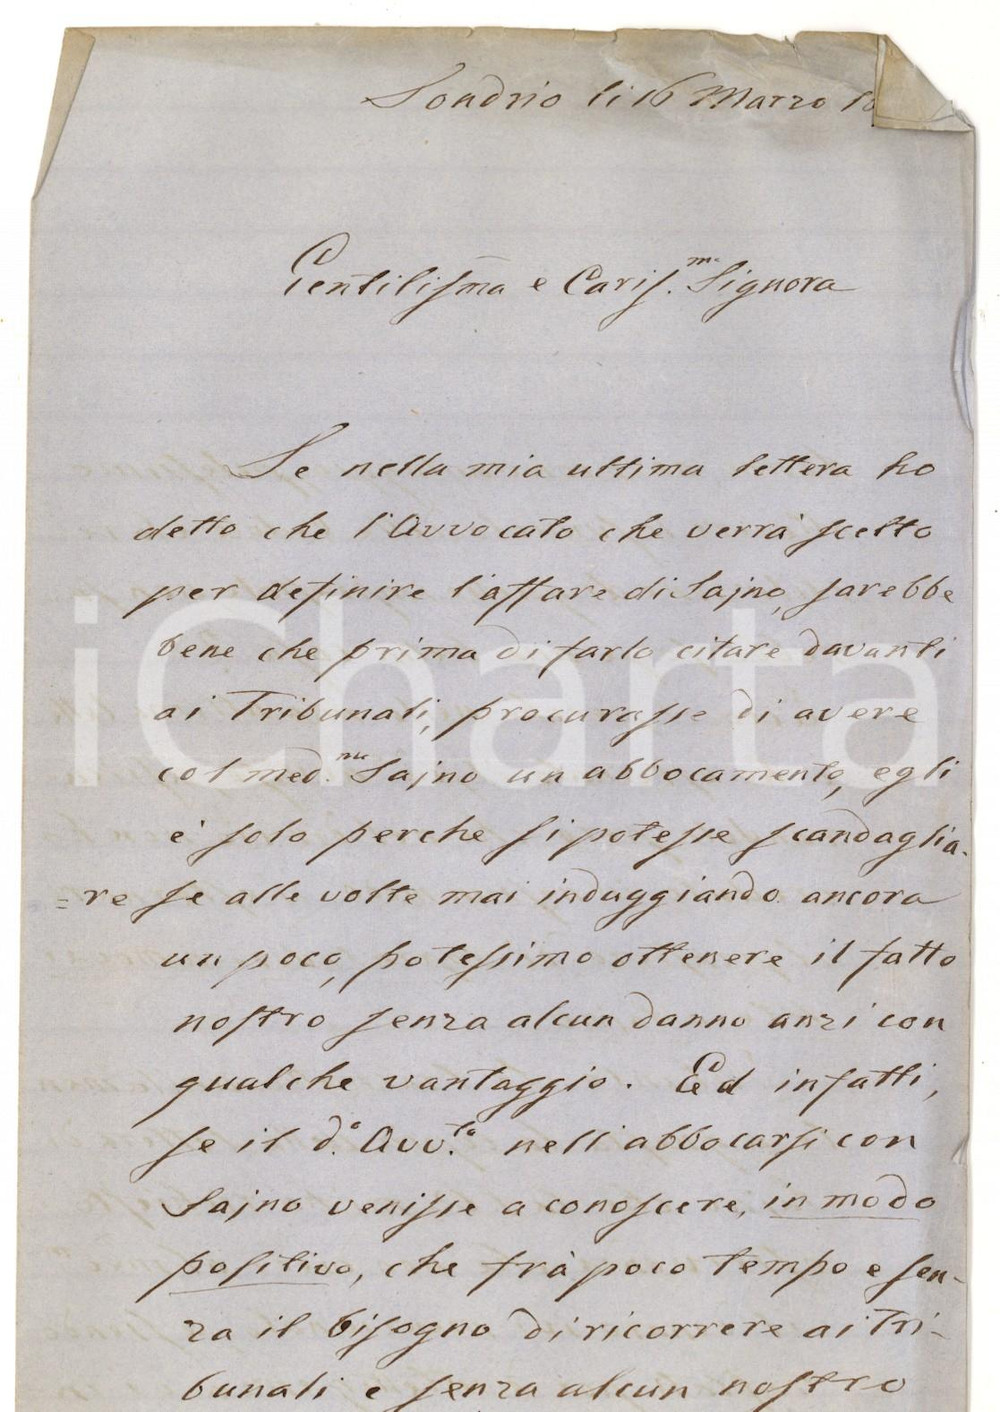 Sondrio li 16 Marzo 18
Gentilis̄ma e Caris.ma Signora
Se nella mia ultima lettera ho
detto che l'Avvocato che verrà scelto
per definire l'affare di Sajno, sarebbe
bene che prima di farlo citare davanti
ai Tribunali, procurasse di avere
col med.mo Sajno un abbocamento, egli
è solo perche si potesse scandaglia-
=re se alle volte mai induggiando ancora
un poco, potessimo ottenere il fatto
nostro senza alcun danno anzi con
qualche vantaggio. Ed infatti,
se il d.o Avv.to nell'abbocarsi con
Sajno venisse a conoscere, in modo
positivo, che frà poco tempo e sen-
za il bisogno di ricorrere ai Tri-
bunali e senza alcun nostro
iCharta